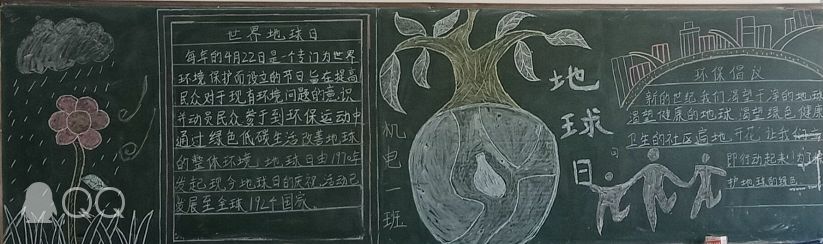 世界地球日
每年的4月22日是一个专门为世界
环境保护而设立的节日旨在提高
民众对于现有环境问题的意识
并动员民众参于到环保运动中
通过绿色低碳生活改善地球
的整体环境，地球日由1970年
发起现今地球日的庆祝活动已
发展至全球192个国家
机电一班
地球日
环保倡议
新的世纪我们渴望干净的地球
渴望健康的地球 渴望绿色健康
卫生的社区遍地开花，让我们
即行动起来！为了
护地球的绿色
QQ